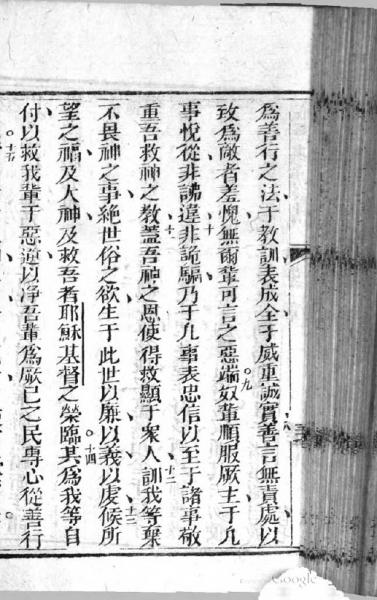 爲善行之法于教訓表成全于威重誠實善言無責處以
八
致爲敵者羞愧無爾輩可言之惡端奴輩順服厥主于凡
九
事悅從非違非詭騙乃于凡事表忠信以至于諸事敬
十
重吾救神之教蓋吾神之恩使得救顯于衆人訓我等棄
十一
十二
不畏神之事絕世俗之欲生于此世以廉以義以虔候所
十三
望之福及大神及救吾者耶穌基督之榮臨其爲我等自
十四
付以救我輩于惡逆以淨吾輩爲厥己之民專心從善行
十五
Google